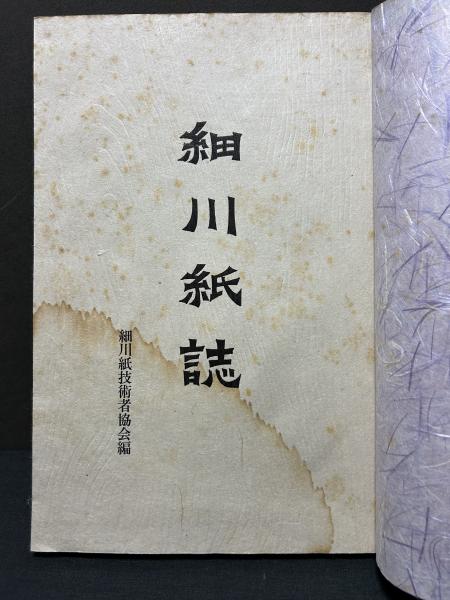 細川紙誌
細川紙技術者協会編